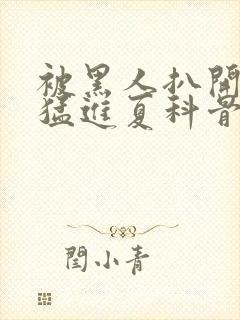 被黑人扒開
猛進夏科骨
閆小青